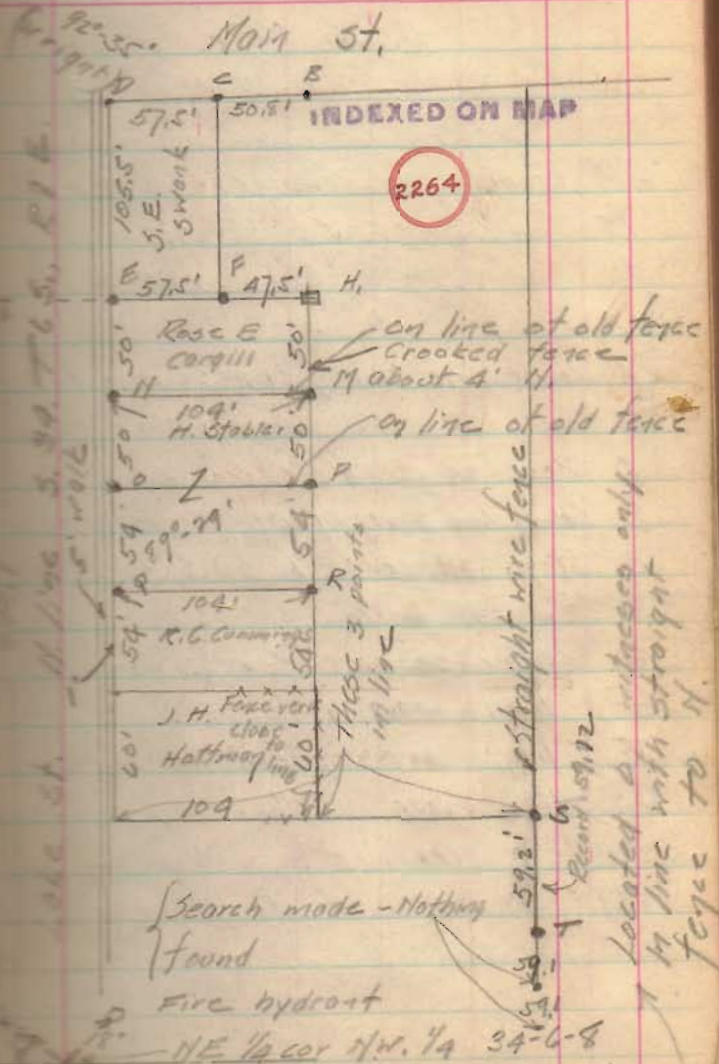 92°-35°
Main St.
D
C
B
57.5'
50.8'
INDEXED ON MAP
2264
105.5'
S.E.
Swank
E
57.5'
F
47.5'
H.
Rose E
Cargill
50'
50'
on line of old fence
Crooked fence
N
M about 4' N.
104'
H. Stabler
50'
50
on line of old fence
O
Z
P
54'
89°-24'
54'
R
104'
54'
R.C. Cummings
54'
5' walk
These 3 points
in line
Straight wire fence
J. H.
Hoffman
Fence very
close
to
line
60'
60'
104
S
Record 59.12
59.2'
Located as witnesses only
in line with straight
fence to N.
Lake St.
N line S. 34. T 6 S., R 1 E.
{Search made - Nothing
found
Fire hydrant
NE 1/4 cor N.W. 1/4 34-6-8